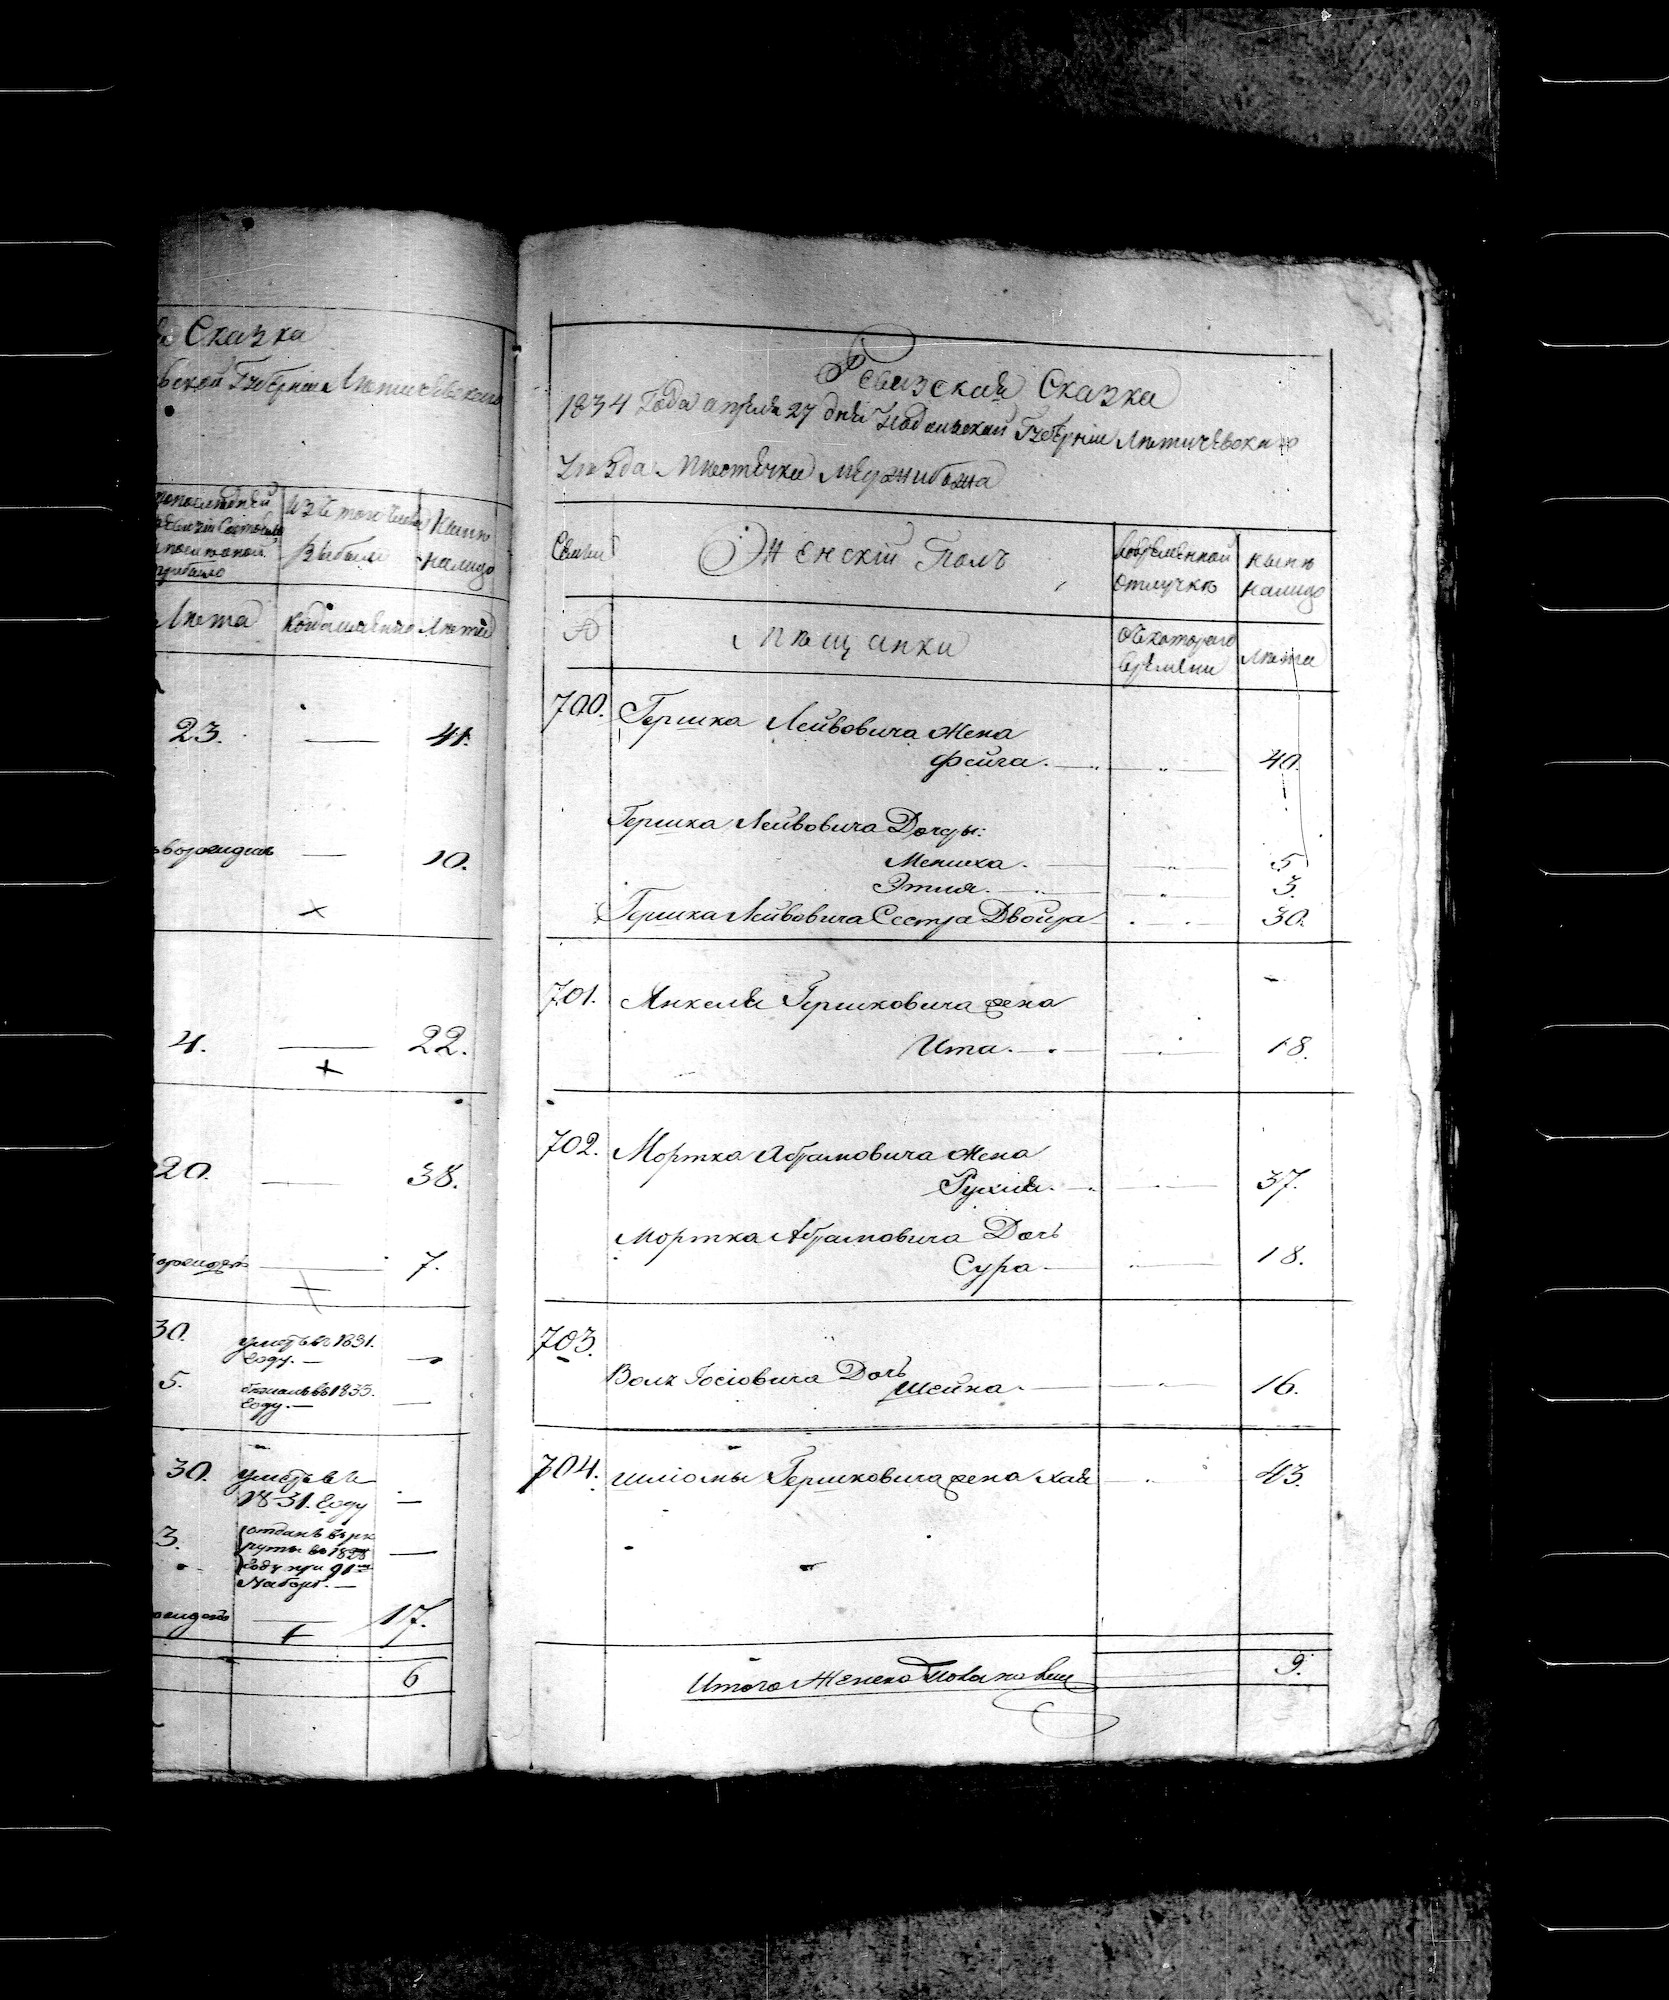 Сказка
Губерніи Летичевскаго
Изъ того числа
Ныне
выбыли
налицо
Лета
Когда именно
Лета
23.
41.
10.
4.
22.
20.
38.
7.
30.
умеръ въ 1831.
году.
5.
1833.
году.
30.
умеръ въ
1831. году
3.
отданъ въ рек
руты въ 1828
году при 91м
Наборе.
17.
6
Ревизская Сказка
1834 Года апреля 27 дня Подольской Губерніи Летичевскаго
Уезда Местечка Меджибожа
Семьи
Женскій Полъ
Во временной
отлучке
Ныне
налицо
№
Мещанки
Съ котораго
времени
Лета
700.
Гершка Лейбовича Жена
Фейга.
40.
Гершка Лейбовича Дочеры:
Мениха.
5
Этля.
3.
Гершка Лейбовича Сестра Двойра
30.
701.
Янкеля Гершковича жена
Ита.
18.
702.
Мортка Абрамовича Жена
Рухля.
37.
Мортка Абрамовича Дочь
Сура
18.
703.
Волк Іосіовича Дочь
Шейна.
16.
704.
Шліомы Гершковича жена Хая
43.
Итого Женска Пола на лицо
9.